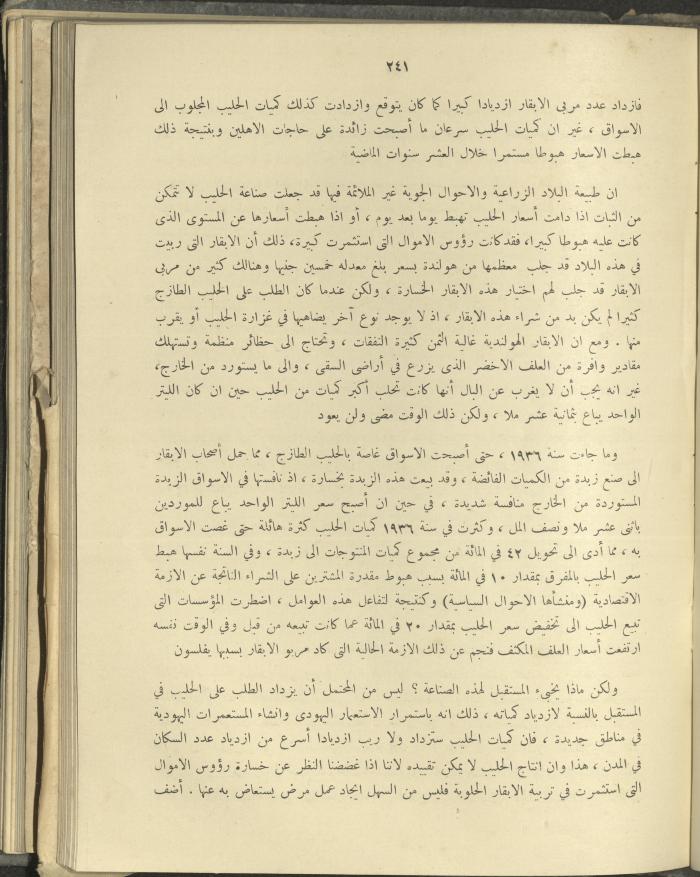 ٢٤١
فازداد عدد مربى الابقار ازديادا كبيرا كما كان يتوقع وازدادت كذلك كميات الحليب المجلوب الى
الاسواق ، غير ان كميات الحليب سرعان ما أصبحت زائدة على حاجات الاهلين وبنتيجة ذلك
هبطت الاسعار هبوطا مستمرا خلال العشر سنوات الماضية
ان طبيعة البلاد الزراعية والاحوال الجوية غير الملائمة فيها قد جعلت صناعة الحليب لا تتمكن
من الثبات اذا دامت أسعار الحليب تهبط يوما بعد يوم ، أو اذا هبطت أسعارها عن المستوى الذى
كانت عليه هبوطا كبيرا، فقد كانت رؤوس الاموال التى استثمرت كبيرة، ذلك أن الابقار التى ربيت
في هذه البلاد قد جلب معظمها من هولندة بسعر بلغ معدله خمسين جنيها وهنالك كثير من مربى
الابقار قد جلب لهم اختيار هذه الابقار الخسارة ، ولكن عندما كان الطلب على الحليب الطازج
كثيرا لم يكن بد من شراء هذه الابقار ، اذ لا يوجد نوع آخر يضاهيها في غزارة الحليب أو يقرب
منها . ومع ان الابقار الهولندية غالية الثمن كثيرة النفقات ، وتحتاج الى حظائر منظمة وتستهلك
مقادير وافرة من العلف الاخضر الذى يزرع في أراضى السقى ، والى ما يستورد من الخارج،
غير انه يجب أن لا يغرب عن البال أنها كانت تحلب أكبر كميات من الحليب حين ان كان الليتر
الواحد يباع بثمانية عشر ملا ، ولكن ذلك الوقت مضى ولن يعود
وما جاءت سنة ١٩٣٦ ، حتى أصبحت الاسواق غاصة بالحليب الطازج ، مما حمل أصحاب الابقار
الى صنع زبدة من الكميات الفائضة ، وقد بيعت هذه الزبدة بخسارة ، اذ نافستها في الاسواق الزبدة
المستوردة من الخارج منافسة شديدة ، في حين ان أصبح سعر الليتر الواحد يباع للموردين
باثنى عشر ملا ونصف المل ، وكثرت في سنة ١٩٣٦ كميات الحليب كثرة هائلة حتى غصت الاسواق
به ، مما أدى الى تحويل ٤٢ في المائة من مجموع كميات المنتوجات الى زبدة ، وفي السنة نفسها هبط
سعر الحليب بالمفرق بمقدار ١٠ في المائة بسبب هبوط مقدرة المشترين على الشراء الناتجة عن الازمة
الاقتصادية (ومنشأها الاحوال السياسية) وكنتيجة لتفاعل هذه العوامل ، اضطرت المؤسسات التى
تبيع الحليب الى تخفيض سعر الحليب بمقدار ٢٠ في المائة عما كانت تبيعه من قبل وفي الوقت نفسه
ارتفعت أسعار العلف المكثف فنجم عن ذلك الازمة الحالية التى كاد مربو الابقار بسببها يفلسون
ولكن ماذا يخبىء المستقبل لهذه الصناعة ؟ ليس من المحتمل أن يزداد الطلب على الحليب في
المستقبل بالنسبة لازدياد كمياته ، ذلك انه باستمرار الاستعمار اليهودى وانشاء المستعمرات اليهودية
في مناطق جديدة ، فان كميات الحليب ستزداد ولا ريب ازديادا أسرع من ازدياد عدد السكان
في المدن ، هذا وان انتاج الحليب لا يمكن تقييده لاننا اذا غضضنا النظر عن خسارة رؤوس الاموال
التى استثمرت في تربية الابقار الحلوبة فليس من السهل ايجاد عمل مرض يستعاض به عنها . أضف